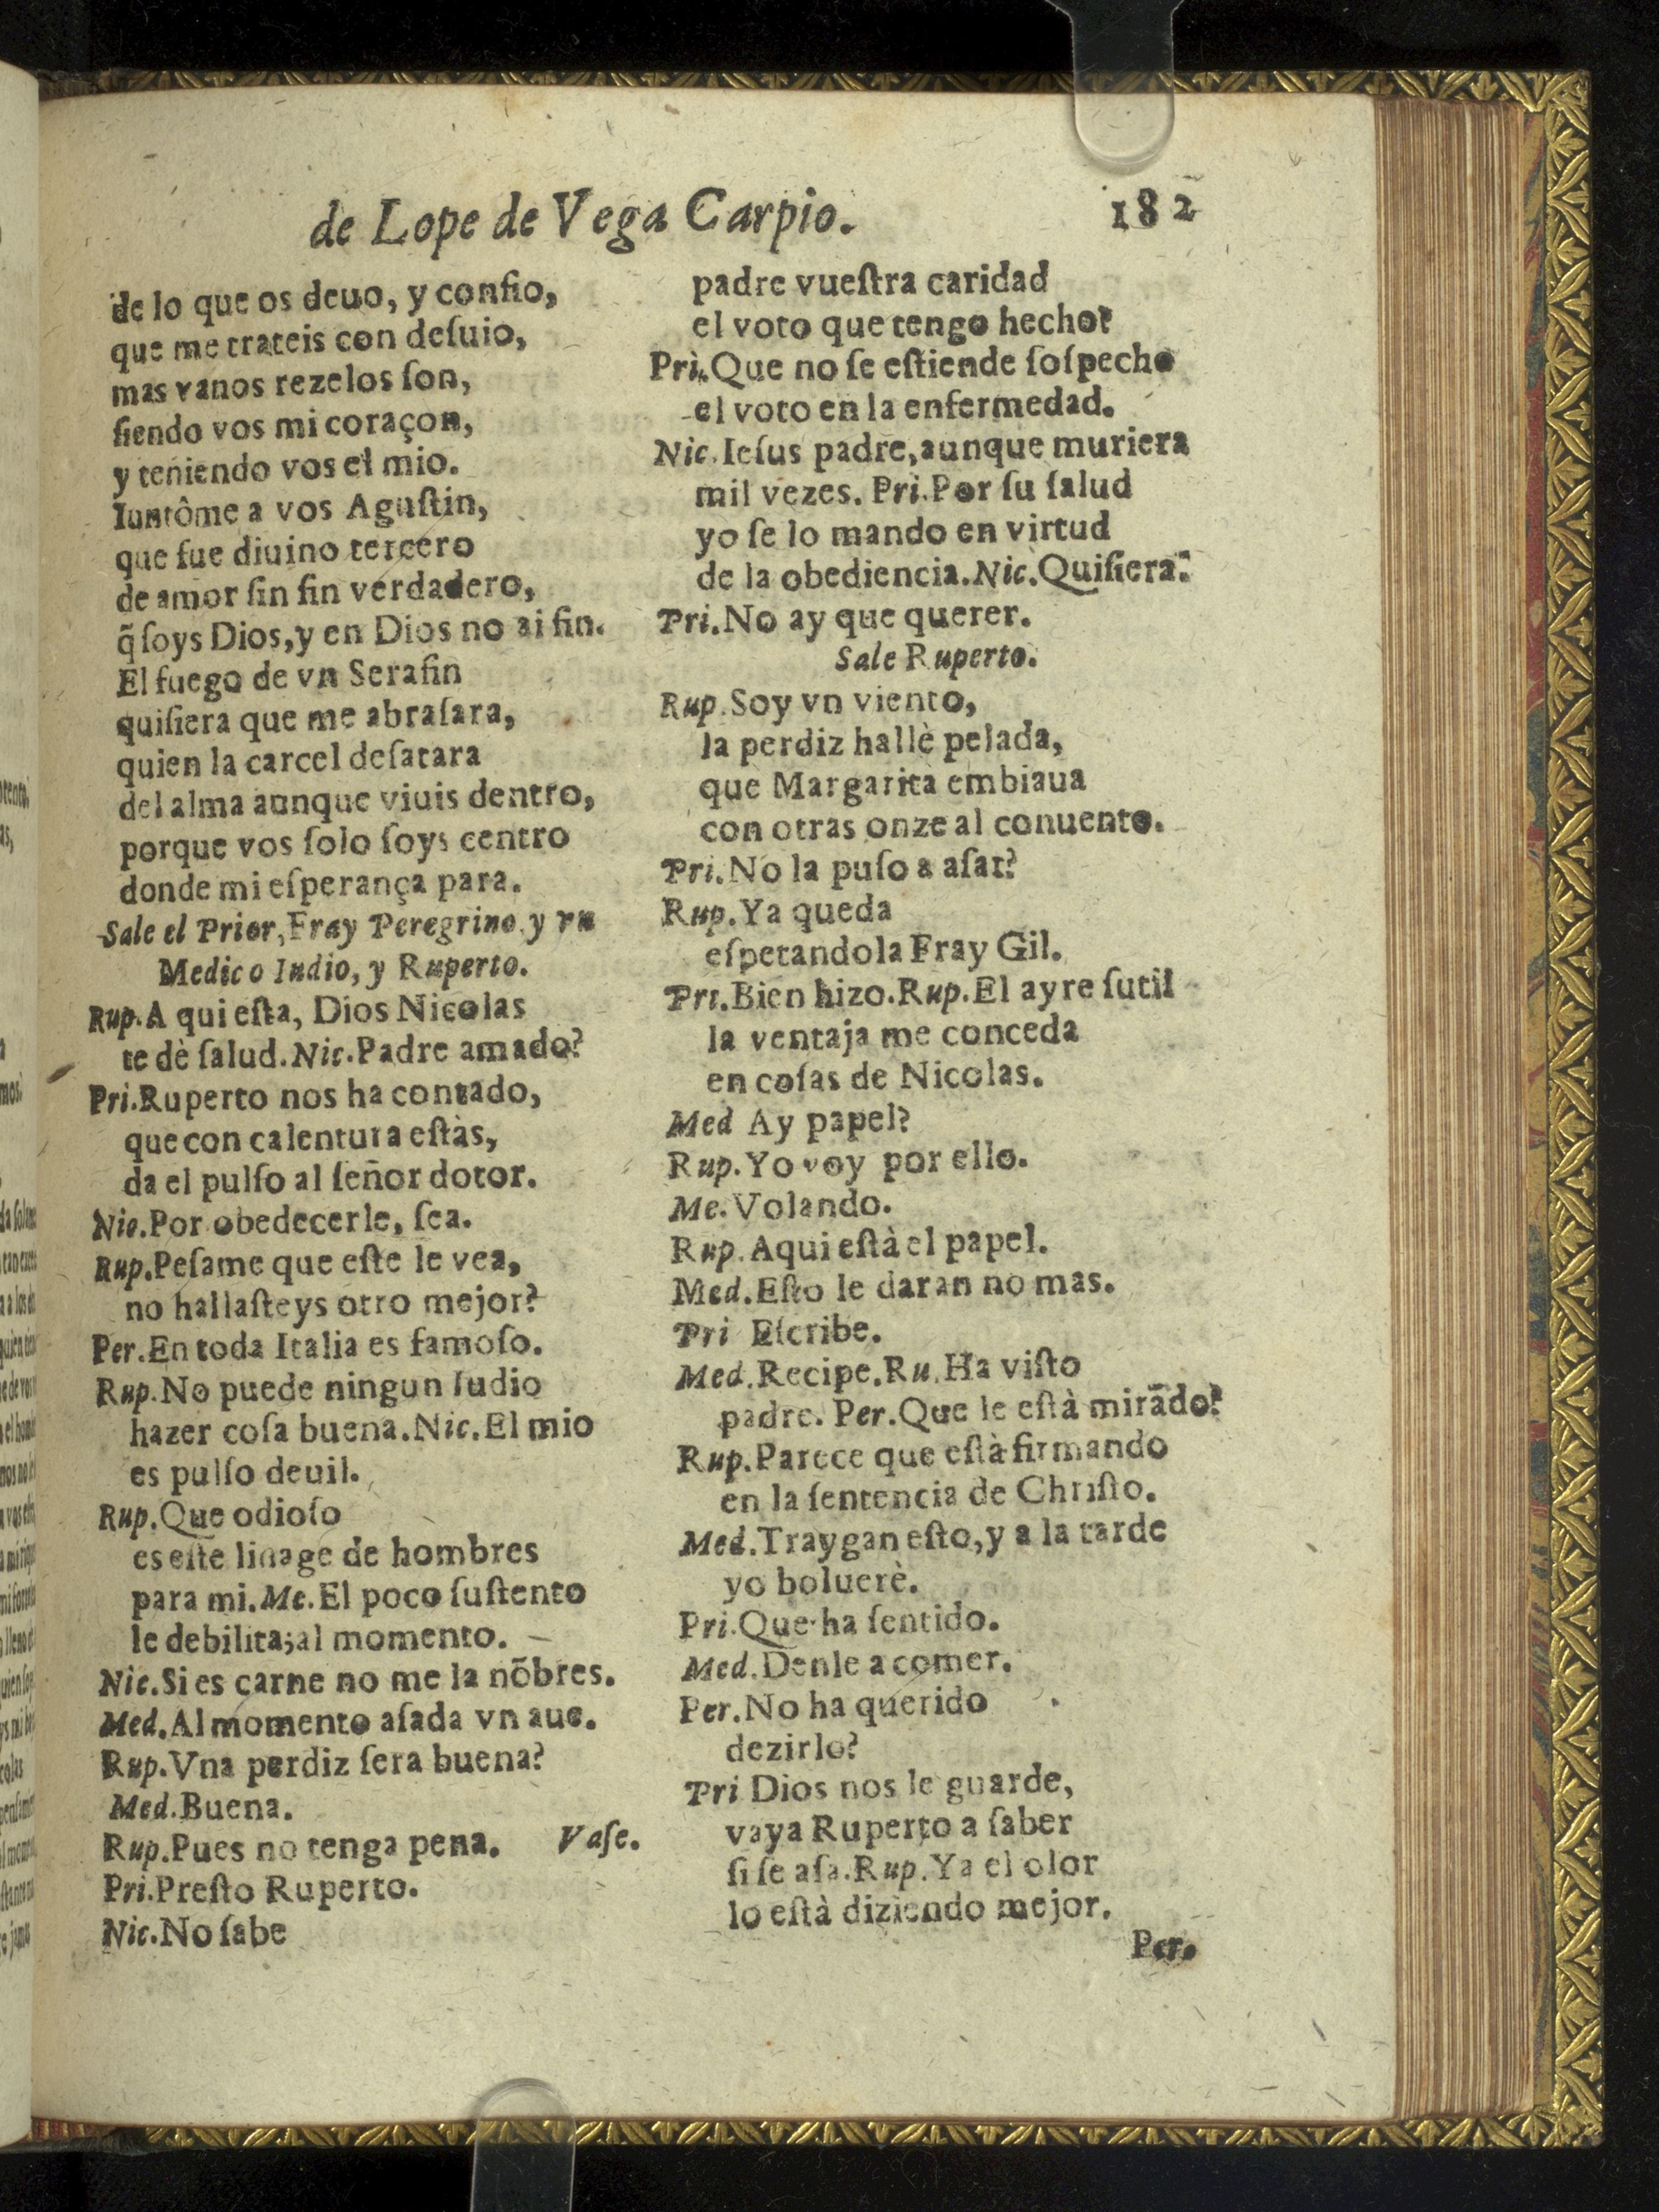 de Lope de Vega Carpio.
182
de lo que os deuo, y confio,
que me trateis con deſuio,
mas vanos rezelos ſon,
ſiendo vos mi coraçon,
y teniendo vos el mio.
Iuntôme a vos Aguſtin,
que fue diuino tercero
de amor ſin fin verdadero,
q̃ ſoys Dios, y en Dios no ai fin.
El fuego de vn Serafin
quiſiera que me abraſara,
quien la carcel deſatara
del alma aunque viuis dentro,
porque vos ſolo ſoys centro
donde mi eſperança para.
Sale el Prior, Fray Peregrino, y vn
Medico Iudio, y Ruperto.
Rup. A qui eſta, Dios Nicolas
te dè ſalud. Nic. Padre amado?
Pri. Ruperto nos ha contado,
que con calentura eſtàs,
da el pulſo al ſeñor dotor.
Nic. Por obedecerle, ſea.
Rup. Peſame que eſte le vea,
no hallaſteys otro mejor?
Per. En toda Italia es famoſo.
Rup. No puede ningun Iudio
hazer coſa buena. Nic. El mio
es pulſo deuil.
Rup. Que odioſo
es eſte linage de hombres
para mi. Me. El poco ſuſtento
le debilita; al momento.
Nic. Si es carne no me la nõbres.
Med. Al momento aſada vn aue.
Rup. Vna perdiz ſera buena?
Med. Buena.
Rup. Pues no tenga pena. Vaſe.
Pri. Preſto Ruperto.
Nic. No ſabe
padre vueſtra caridad
el voto que tengo hecho?
Pri. Que no ſe eſtiende ſoſpecho
el voto en la enfermedad.
Nic. Ieſus padre, aunque muriera
mil vezes. Pri. Por ſu ſalud
yo ſe lo mando en virtud
de la obediencia. Nic. Quiſiera.
Pri. No ay que querer.
Sale Ruperto.
Rup. Soy vn viento,
la perdiz hallè pelada,
que Margarita embiaua
con otras onze al conuento.
Pri. No la puſo a aſar?
Rup. Ya queda
eſperandola Fray Gil.
Pri. Bien hizo. Rup. El ayre ſutil
la ventaja me conceda
en coſas de Nicolas.
Med Ay papel?
Rup. Yo voy por ello.
Me. Volando.
Rup. Aqui eſtà el papel.
Med. Eſto le daran no mas.
Pri Eſcribe.
Med. Recipe. Ru. Ha viſto
padre. Per. Que le eſtà mirãdo?
Rup. Parece que eſtà firmando
en la ſentencia de Chriſto.
Med. Traygan eſto, y a la tarde
yo boluerè.
Pri. Que ha ſentido.
Med. Denle a comer.
Per. No ha querido
dezirlo?
Pri Dios nos le guarde,
vaya Ruperto a ſaber
ſi ſe aſa. Rup. Ya el olor
lo eſtà diziendo mejor.
Per.